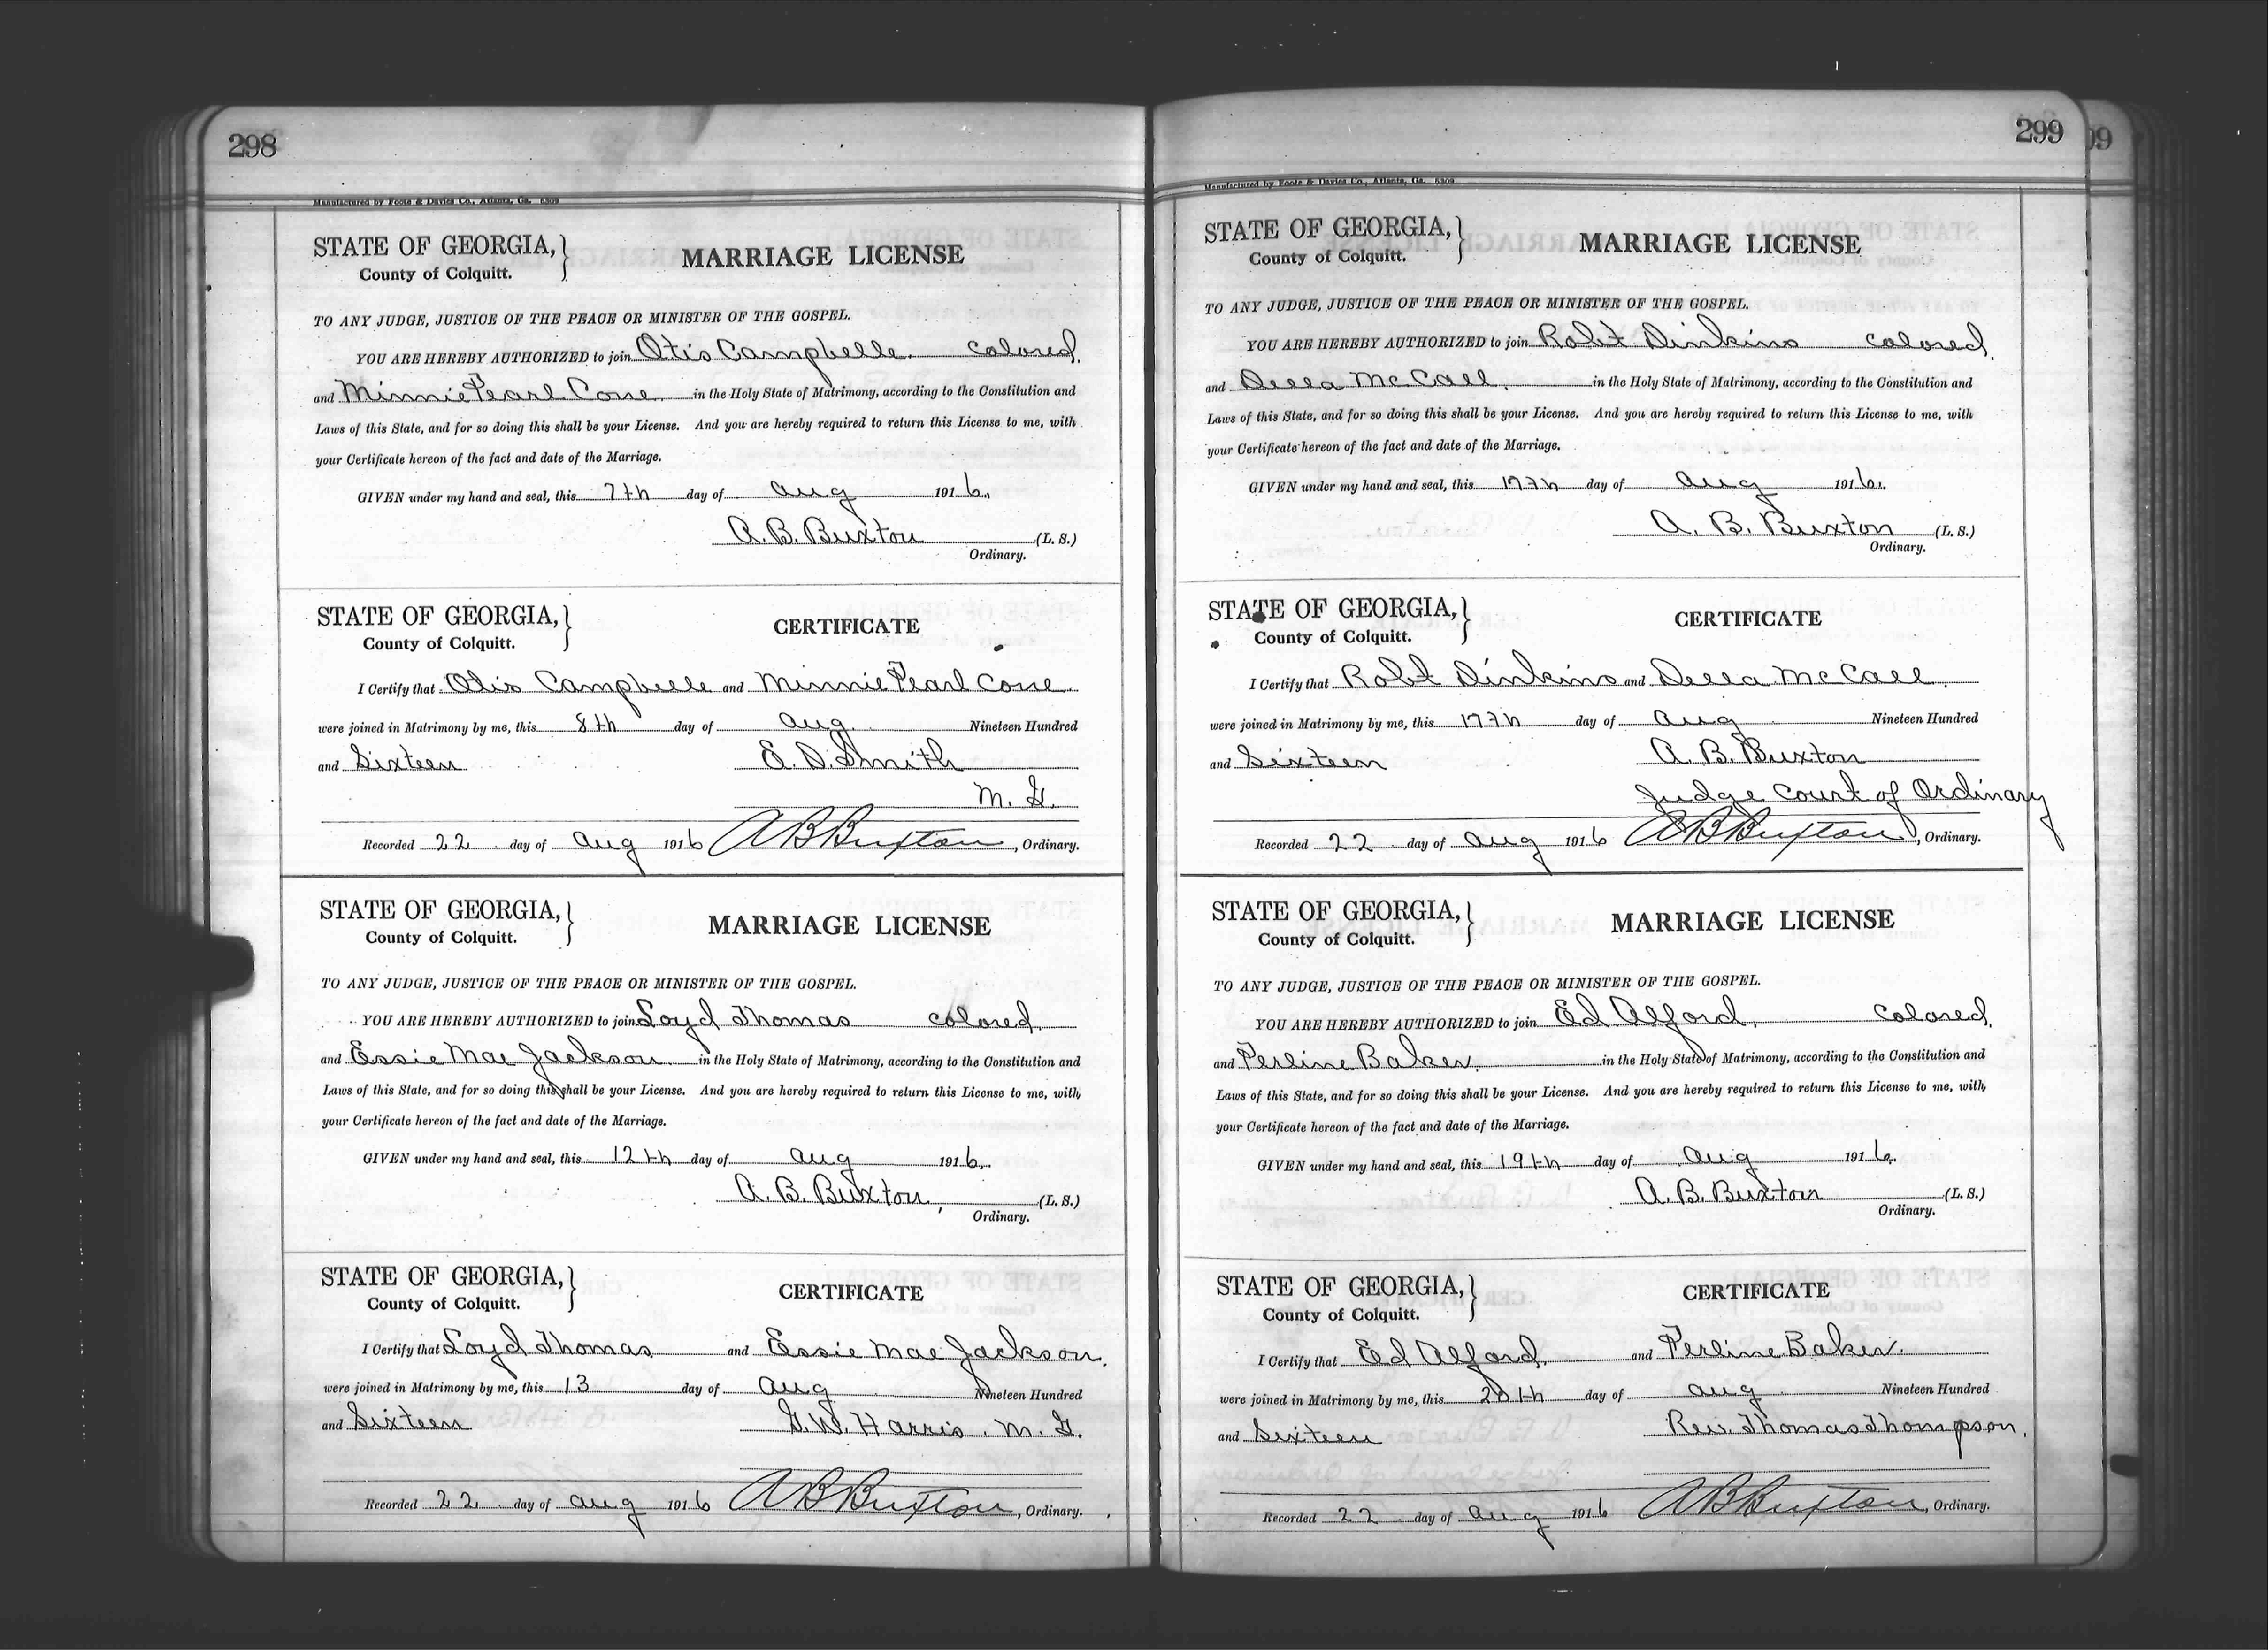 298
Manufactured by Foote & Davies Co., Atlanta, Ga. 6309
STATE OF GEORGIA,
County of Colquitt.
MARRIAGE LICENSE
TO ANY JUDGE, JUSTICE OF THE PEACE OR MINISTER OF THE GOSPEL.
YOU ARE HEREBY AUTHORIZED to join Otis Campbelle. colored.
and Minnie Pearl Cone. in the Holy State of Matrimony, according to the Constitution and
Laws of this State, and for so doing this shall be your License. And you are hereby required to return this License to me, with
your Certificate hereon of the fact and date of the Marriage.
GIVEN under my hand and seal, this 7th day of Aug 1916.
A. B. Buxton (L. S.)
Ordinary.
STATE OF GEORGIA,
County of Colquitt.
CERTIFICATE
I Certify that Otis Campbelle and Minnie Pearl Cone.
were joined in Matrimony by me, this 8th day of Aug. Nineteen Hundred
and Sixteen E. D. Smith
M. G.
Recorded 22 day of Aug 1916 A B Buxton, Ordinary.
STATE OF GEORGIA,
County of Colquitt.
MARRIAGE LICENSE
TO ANY JUDGE, JUSTICE OF THE PEACE OR MINISTER OF THE GOSPEL.
YOU ARE HEREBY AUTHORIZED to join Loyd Thomas colored.
and Essie Mae Jackson in the Holy State of Matrimony, according to the Constitution and
Laws of this State, and for so doing this shall be your License. And you are hereby required to return this License to me, with
your Certificate hereon of the fact and date of the Marriage.
GIVEN under my hand and seal, this 12th day of Aug 1916.
A. B. Buxton, (L. S.)
Ordinary.
STATE OF GEORGIA,
County of Colquitt.
CERTIFICATE
I Certify that Loyd Thomas and Essie Mae Jackson.
were joined in Matrimony by me, this 13 day of Aug Nineteen Hundred
and Sixteen G. W. Harris. M. G.
Recorded 22 day of Aug 1916 A B Buxton, Ordinary.
299
Manufactured by Foote & Davies Co., Atlanta, Ga. 6309
STATE OF GEORGIA,
County of Colquitt.
MARRIAGE LICENSE
TO ANY JUDGE, JUSTICE OF THE PEACE OR MINISTER OF THE GOSPEL.
YOU ARE HEREBY AUTHORIZED to join Robt Dinkins colored.
and Della McCall. in the Holy State of Matrimony, according to the Constitution and
Laws of this State, and for so doing this shall be your License. And you are hereby required to return this License to me, with
your Certificate hereon of the fact and date of the Marriage.
GIVEN under my hand and seal, this 17th day of Aug 1916.
A. B. Buxton (L. S.)
Ordinary.
STATE OF GEORGIA,
County of Colquitt.
CERTIFICATE
I Certify that Robt Dinkins and Della McCall.
were joined in Matrimony by me, this 17th day of Aug Nineteen Hundred
and Sixteen A. B. Buxton
Judge Court of Ordinary
Recorded 22 day of Aug 1916 A B Buxton, Ordinary.
STATE OF GEORGIA,
County of Colquitt.
MARRIAGE LICENSE
TO ANY JUDGE, JUSTICE OF THE PEACE OR MINISTER OF THE GOSPEL.
YOU ARE HEREBY AUTHORIZED to join Ed Alford. colored.
and Perline Baker. in the Holy State of Matrimony, according to the Constitution and
Laws of this State, and for so doing this shall be your License. And you are hereby required to return this License to me, with
your Certificate hereon of the fact and date of the Marriage.
GIVEN under my hand and seal, this 19th day of Aug 1916.
A. B. Buxton (L. S.)
Ordinary.
STATE OF GEORGIA,
County of Colquitt.
CERTIFICATE
I Certify that Ed Alford. and Perline Baker.
were joined in Matrimony by me, this 20th day of Aug Nineteen Hundred
and Sixteen Rev. Thomas Thompson.
Recorded 22 day of Aug 1916 A B Buxton, Ordinary.